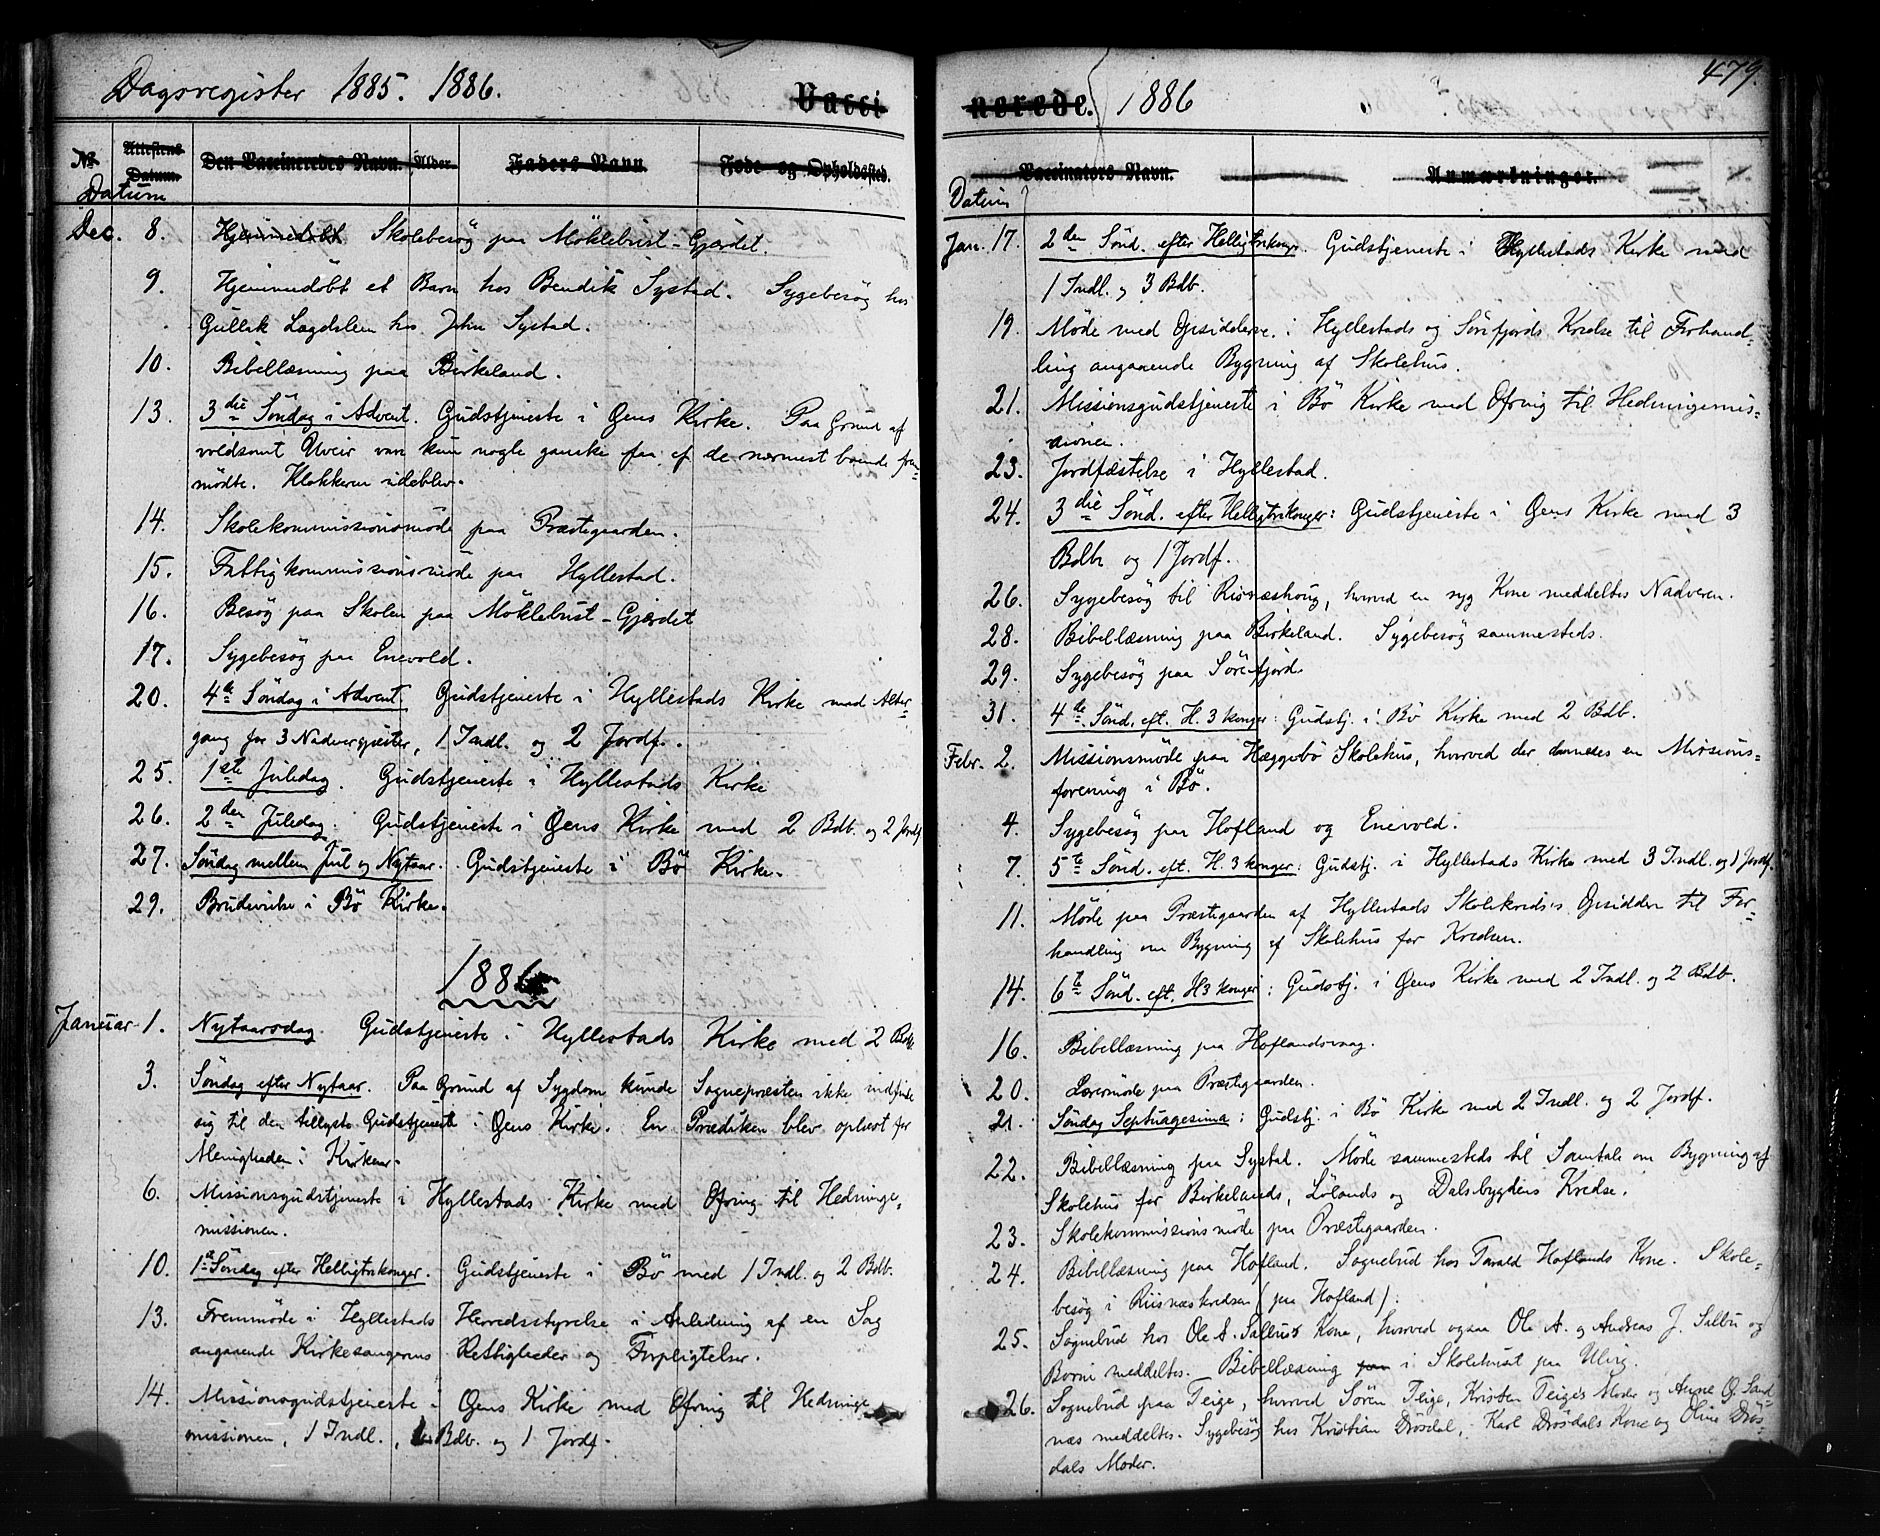 Dagsregister 1885. 1886.
Vacci
No. Attestens Datum Den Vaccineredes Navn. Alder Faders Navn Føde- og Opholdssted.
Datum
Dec. 8. Hjemmedöbt Skolebesøg paa Möklebust-Gjerdet.
9. Hjemmedöbt et Barn hos Bendik Systad. Sygebesøg hos
Gullik Lægdslem hos John Systad.
10. Bibellæsning paa Birkeland.
13. 3die Söndag i Advent. Gudstjeneste i Öens Kirke. Paa Grund af
voldsomt Uveir var kun nogle ganske faa af de nærmest boende frem-
mödte. Klokkeren udeblev.
14. Skolekommissionsmöde paa Præstegaarden.
15. Fattigkommissionsmöde paa Hyllestad.
16. Besøg paa Skolen paa Möklebust-Gjerdet
17. Sygebesøg paa Enevold.
20. 4de Söndag i Advent. Gudstjeneste i Hyllestads Kirke med Alter-
gang for 3 Nadvergjæster, 1 Indl. og 2 Jordf.
25. 1ste Juledag. Gudstjeneste i Hyllestads Kirke
26. 2den Juledag. Gudstjeneste i Öens Kirke med 2 Bdb. og 2 Jordf
27. Söndag mellem Jul og Nytaar. Gudstjeneste i Bö Kirke.
29. Brudevielse i Bö Kirke.
1886
Januar 1. Nytaarsdag. Gudstjeneste i Hyllestads Kirke med 2 Bdb.
3. Söndag efter Nytaar. Paa Grund af Sygdom kunde Sognepræsten ikke indfinde
sig til den tillyste Gudstjeneste i Öens Kirke. En Prædiken blev oplæst for
Menigheden i Kirken.
6. Missionsgudstjeneste i Hyllestads Kirke med Ofring til Hedninge-
missionen.
10. 1ste Söndag efter Helligtrekonger. Gudstjeneste i Bö med 1 Indl. og 2 Bdb.
13. Fremmöde i Hyllestads Herredsstyrelse i Anledning af en Sag
angaaende Kirkesangerens Rettigheder og Forpligtelser.
14. Missionsgudstjeneste i Öens Kirke med Ofring til Hedninge
missionen, 1 Indl., Bdb. og 1 Jordf.
479.
nerede. 1886
Vaccinators Navn. Anmærkninger.
Datum
Jan. 17. 2den Sönd. efter Helligtrekonger. Gudstjeneste i Hyllestads Kirke med
1 Indl. og 3 Bdb.
19. Møde med Opsidderne i Hyllestads og Sörefjords Kredse til Forhand-
ling angaaende Bygning af Skolehus.
21. Missionsgudstjeneste i Bö Kirke med Ofring til Hedningemis-
sionen.
23. Jordfæstelse i Hyllestad.
24. 3die Sönd. efter Helligtrekonger: Gudstjeneste i Öens Kirke med 3
Bdb og 1 Jordf.
26. Sygebesøg til Risnæshoug, hvorved en syg Kone meddeltes Nadveren.
28. Bibellæsning paa Birkeland. Sygebesøg sammesteds.
29. Sygebesøg paa Sörefjord.
31. 4de Sönd. eft. H. 3 konger: Gudstj. i Bö Kirke med 2 Bdb.
Febr. 2. Missionsmöde paa Hæggebö Skolehus, hvorved der dannedes en Missions-
forening i Bö.
4. Sygebesøg paa Hofland og Enevold.
7. 5te Sönd. eft. H. 3 konger: Gudstj. i Hyllestads Kirke med 3 Indl. og 1 Jordf.
11. Möde paa Præstegaarden af Hyllestads Skolekredses Opsiddere til For-
handling om Bygning af Skolehus for Kredsen.
14. 6te Sönd. eft. H 3 konger: Gudstj. i Öens Kirke med 2 Indl. og 2 Bdb.
16. Bibellæsning paa Hoflandsvaag.
20. Lærermöde paa Præstegaarden.
21. Söndag Septuagesima: Gudstj. i Bö Kirke med 2 Indl. og 2 Jordf.
22. Bibellæsning paa Systad. Möde sammesteds til Samtale om Bygning af
Skolehus for Birkelands, Lölands og Dalsbygdens Kredse.
23. Skolekommissionsmöde paa Præstegaarden.
24. Bibellæsning paa Hofland. Sognebud hos Tarald Hoflands Kone. Skole-
besøg i Risnæskredsen (paa Hofland).
25. Sognebud hos Ole A. Salbus Kone, hvorved ogsaa Ole A. og Andreas J. Salbu og
meddeltes. Bibellæsning paa i Skolehuset paa
26. Sognebud paa Teige, hvorved Sören Teige, Kristen Teiges Moder og Anne O. Sand-
næs meddeltes. Sygebesøg hos Kristian Drösdal, Karl Drösdals Kone og Oline Drös-
dals Moder.